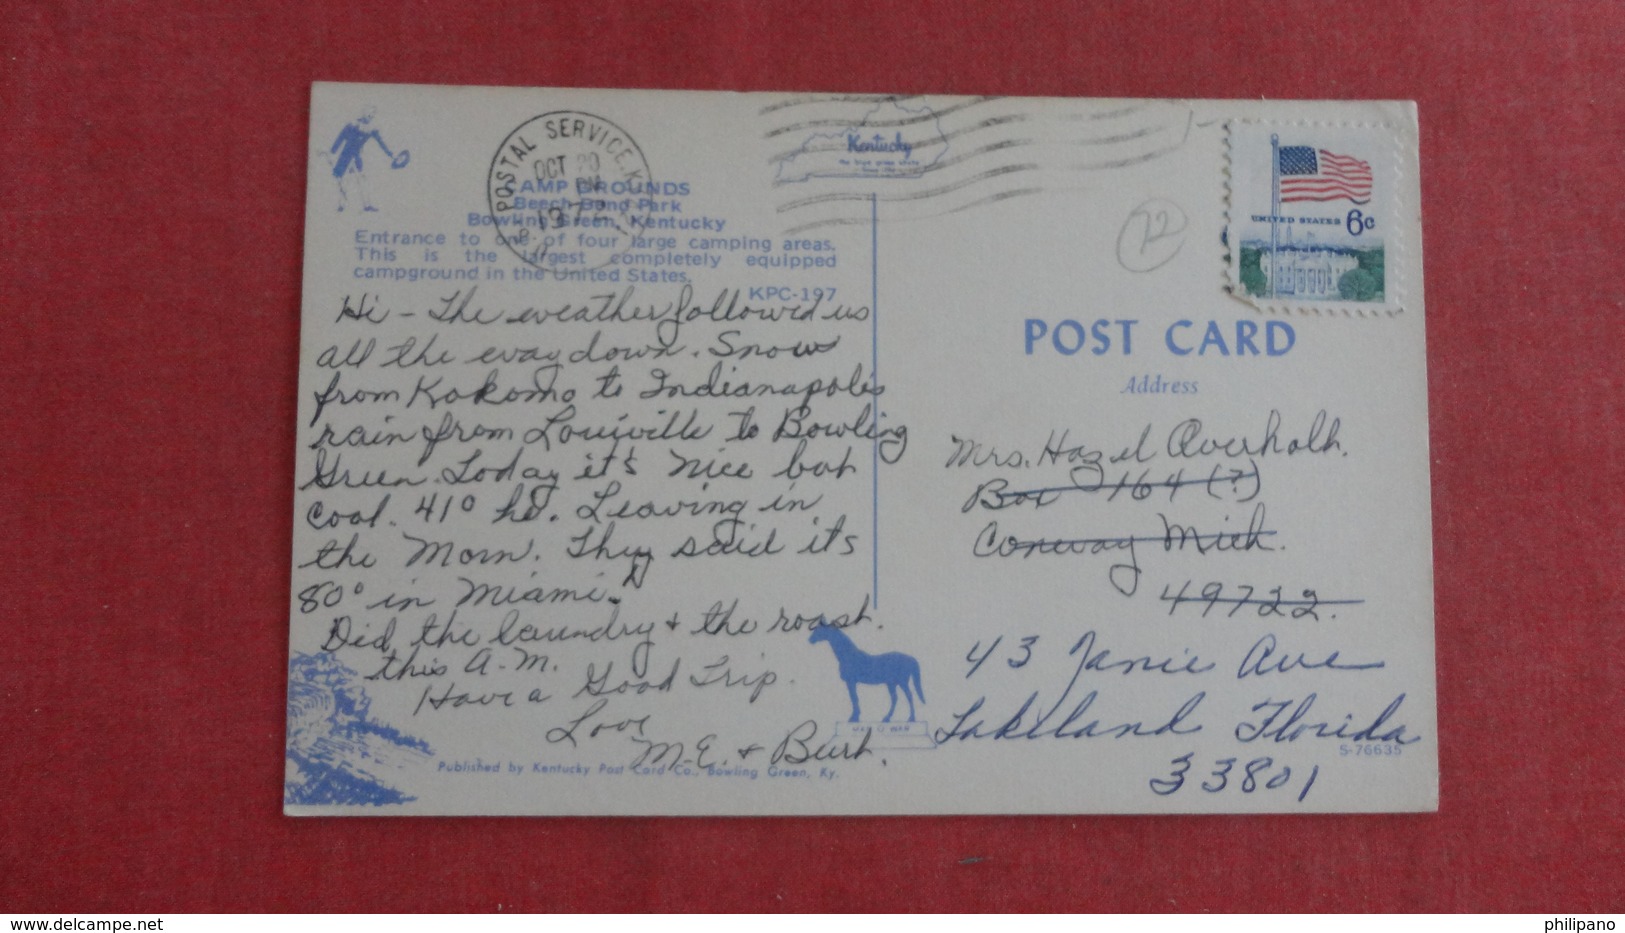 POSTAL SERVICE, KY
OCT 20
PM
1972
CAMP GROUNDS
Beech Bend Park
Bowling Green, Kentucky
Entrance to one of four large camping areas.
This is the largest completely equipped
campground in the United States.
KPC-197
Hi - The weather followed us
all the way down. Snow
from Kokomo to Indianapolis
rain from Louisville to Bowling
Green. Today it's nice but
cool. 41° hi. Leaving in
the Morn. They said its
80° in Miami.
Did the laundry + the roast.
this A.M.
Have a Good Trip.
Love
M.E. + Burt.
Published by Kentucky Post Card Co., Bowling Green, Ky.
Kentucky
the blue grass state
MAN O WAR
72
UNITED STATES 6c
POST CARD
Address
Mrs. Hazel Overholt.
Box 164 (?)
Conway Mich.
49722.
43 Janie Ave
Lakeland Florida
S-76635
33801
delcampe.net
philipano